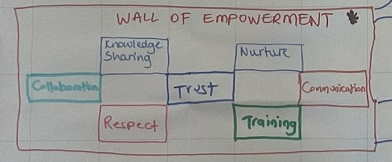 WALL OF EMPOWERMENT
Knowledge
Sharing
Nurture
Collaboration
Trust
Communication
Respect
Training